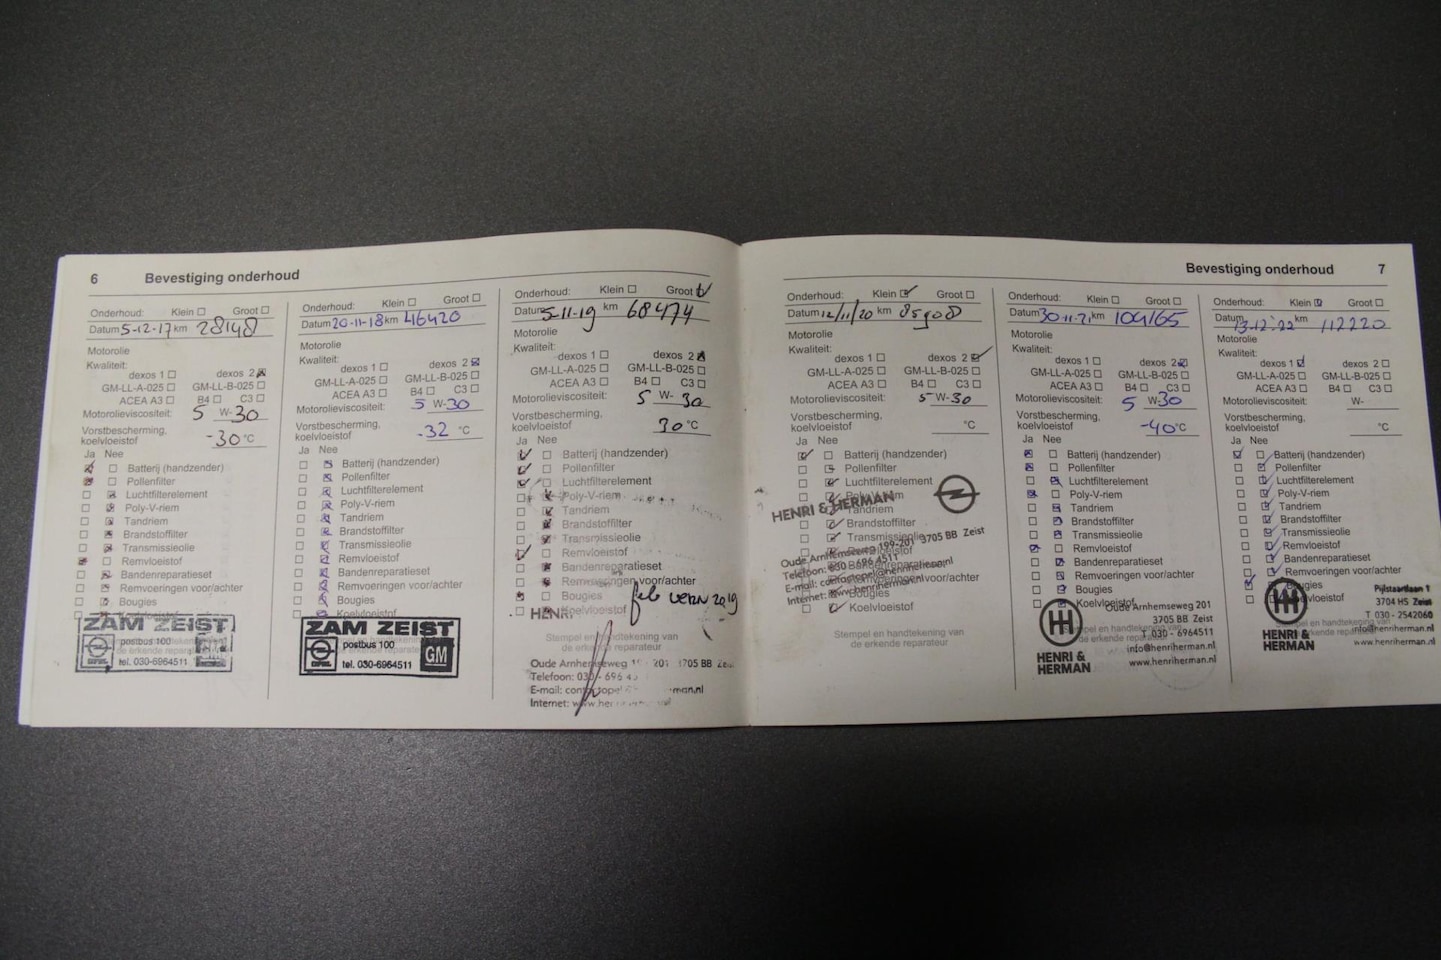 6 Bevestiging onderhoud
Onderhoud: Klein Groot
Datum 5-12-17 km 28148
Motorolie
Kwaliteit:
dexos 1 dexos 2
GM-LL-A-025 GM-LL-B-025
ACEA A3 B4 C3
Motorolieviscositeit: 5 W-30
Vorstbescherming,
koelvloeistof -30 °C
Ja Nee
Batterij (handzender)
Pollenfilter
Luchtfilterelement
Poly-V-riem
Tandriem
Brandstoffilter
Transmissieolie
Remvloeistof
Bandenreparatieset
Remvoeringen voor/achter
Bougies
Koelvloeistof
ZAM ZEIST
postbus 100
tel. 030-6964511
OPEL
Onderhoud: Klein Groot
Datum 20-11-18 km 46420
Motorolie
Kwaliteit:
dexos 1 dexos 2
GM-LL-A-025 GM-LL-B-025
ACEA A3 B4 C3
Motorolieviscositeit: 5 W-30
Vorstbescherming,
koelvloeistof -32 °C
Ja Nee
Batterij (handzender)
Pollenfilter
Luchtfilterelement
Poly-V-riem
Tandriem
Brandstoffilter
Transmissieolie
Remvloeistof
Bandenreparatieset
Remvoeringen voor/achter
Bougies
Koelvloeistof
ZAM ZEIST
postbus 100
tel. 030-6964511
OPEL
GM
Onderhoud: Klein Groot
Datum 5-11-19 km 68474
Motorolie
Kwaliteit:
dexos 1 dexos 2
GM-LL-A-025 GM-LL-B-025
ACEA A3 B4 C3
Motorolieviscositeit: 5 W-30
Vorstbescherming,
koelvloeistof 30 °C
Ja Nee
Batterij (handzender)
Pollenfilter
Luchtfilterelement
Poly-V-riem
Tandriem
Brandstoffilter
Transmissieolie
Remvloeistof
Bandenreparatieset
Remvoeringen voor/achter
Bougies
Koelvloeistof
2019
HENRI
Stempel en handtekening van
de erkende reparateur
Oude Arnhemseweg 201 3705 BB
Telefoon: 030 - 696
E-mail:
Internet:
Bevestiging onderhoud 7
Onderhoud: Klein Groot
Datum 12/11/20 km 85908
Motorolie
Kwaliteit:
dexos 1 dexos 2
GM-LL-A-025 GM-LL-B-025
ACEA A3 B4 C3
Motorolieviscositeit: 5 W-30
Vorstbescherming,
koelvloeistof °C
Ja Nee
Batterij (handzender)
Pollenfilter
Luchtfilterelement
Poly-V-riem
Tandriem
Brandstoffilter
Transmissieolie
Remvloeistof
Bandenreparatieset
Remvoeringen voor/achter
Bougies
Koelvloeistof
HENRI & HERMAN
Oude Arnhemseweg 199-201 3705 BB Zeist
Telefoon: 030 - 696 4511
E-mail: contactopel@henriherman.nl
Internet: www.henriherman.nl
Stempel en handtekening van
de erkende reparateur
Onderhoud: Klein Groot
Datum 30-11-21 km 104165
Motorolie
Kwaliteit:
dexos 1 dexos 2
GM-LL-A-025 GM-LL-B-025
ACEA A3 B4 C3
Motorolieviscositeit: 5 W-30
Vorstbescherming,
koelvloeistof -40 °C
Ja Nee
Batterij (handzender)
Pollenfilter
Luchtfilterelement
Poly-V-riem
Tandriem
Brandstoffilter
Transmissieolie
Remvloeistof
Bandenreparatieset
Remvoeringen voor/achter
Bougies
Koelvloeistof
HENRI &
HERMAN
Oude Arnhemseweg 201
3705 BB Zeist
T 030 - 6964511
info@henriherman.nl
www.henriherman.nl
Onderhoud: Klein Groot
Datum 13-12-22 km 112220
Motorolie
Kwaliteit:
dexos 1 dexos 2
GM-LL-A-025 GM-LL-B-025
ACEA A3 B4 C3
Motorolieviscositeit: W-
Vorstbescherming,
koelvloeistof °C
Ja Nee
Batterij (handzender)
Pollenfilter
Luchtfilterelement
Poly-V-riem
Tandriem
Brandstoffilter
Transmissieolie
Remvloeistof
Bandenreparatieset
Remvoeringen voor/achter
Bougies
Koelvloeistof
HENRI &
HERMAN
Pijlstaartlaan 1
3704 HS Zeist
T 030 - 2542060
info@henriherman.nl
www.henriherman.nl
Stempel en handtekening van
de erkende reparateur